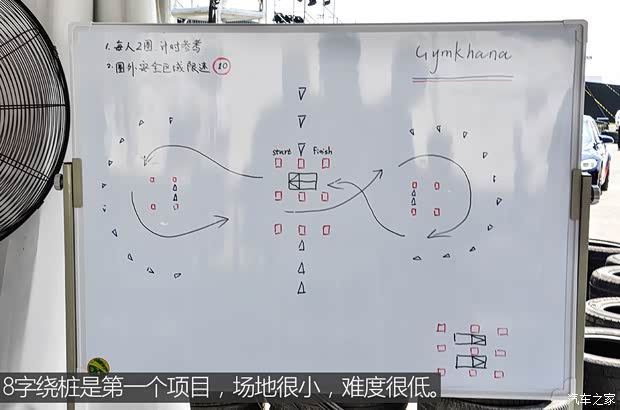 1. 每人2圈.计时参考
Gymkhana
2. 圈外.安全区域限速 80
start Finish
8字绕桩是第一个项目，场地很小，难度很低。
汽车之家